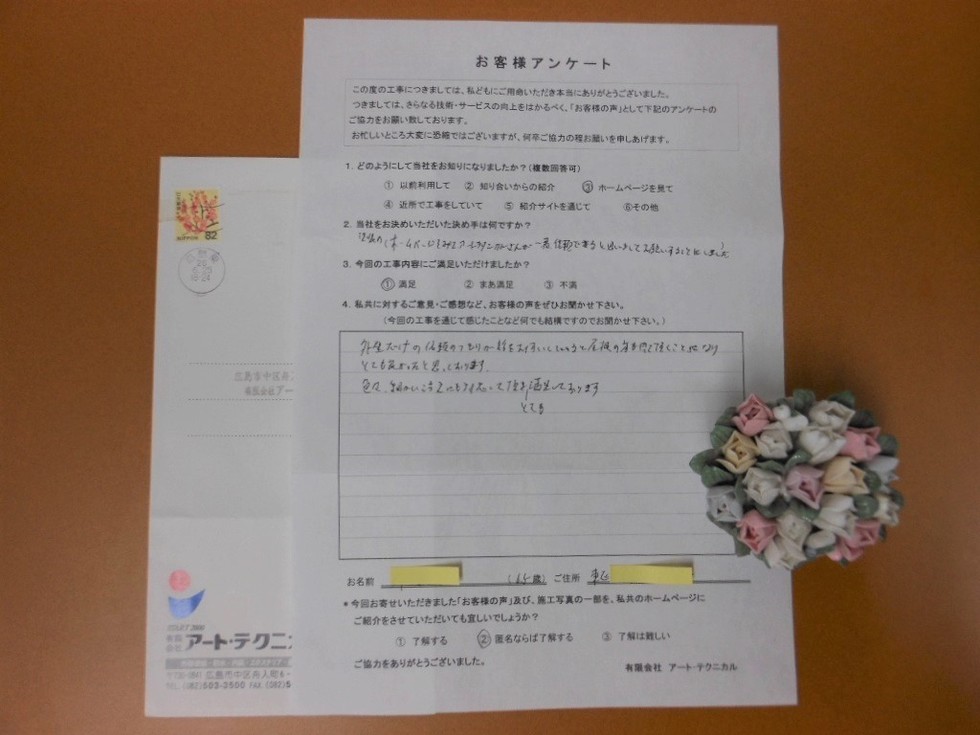 お客様アンケート
この度の工事につきましては、私どもにご用命いただき本当にありがとうございました。
つきましては、さらなる技術・サービスの向上をはかるべく、「お客様の声」として下記のアンケートの
ご協力をお願い致しております。
お忙しいところ大変に恐縮ではございますが、何卒ご協力の程お願いを申しあげます。
1. どのようにして当社をお知りになりましたか？(複数回答可)
① 以前利用して ② 知り合いからの紹介 ③ ホームページを見て
④ 近所で工事をしていて ⑤ 紹介サイトを通じて ⑥その他
2. 当社をお決めいただいた決め手は何ですか？
一番信頼できると思いましてお願いすることにしました
3. 今回の工事内容にご満足いただけましたか？
① 満足 ② まあ満足 ③ 不満
4. 私共に対するご意見・ご感想など、お客様の声をぜひお聞かせ下さい。
(今回の工事を通じて感じたことなど何でも結構ですのでお聞かせ下さい。)
外壁だけの依頼のつもりが
とても良かったと思っております。
色々、細かい注文にも対応して頂き満足しております
とても
お名前 (65歳) ご住所 東区
*今回お寄せいただきました「お客様の声」及び、施工写真の一部を、私共のホームページに
ご紹介をさせていただいても宜しいでしょうか？
① 了解する ② 匿名ならば了解する ③ 了解は難しい
ご協力をありがとうございました。
有限会社 アート・テクニカル
82
NIPPON
広島市中区舟入
有限会社アー
有限会社 アート・テクニ
広島市中区舟入町6-
TEL (082)503-2500 FAX (082)5